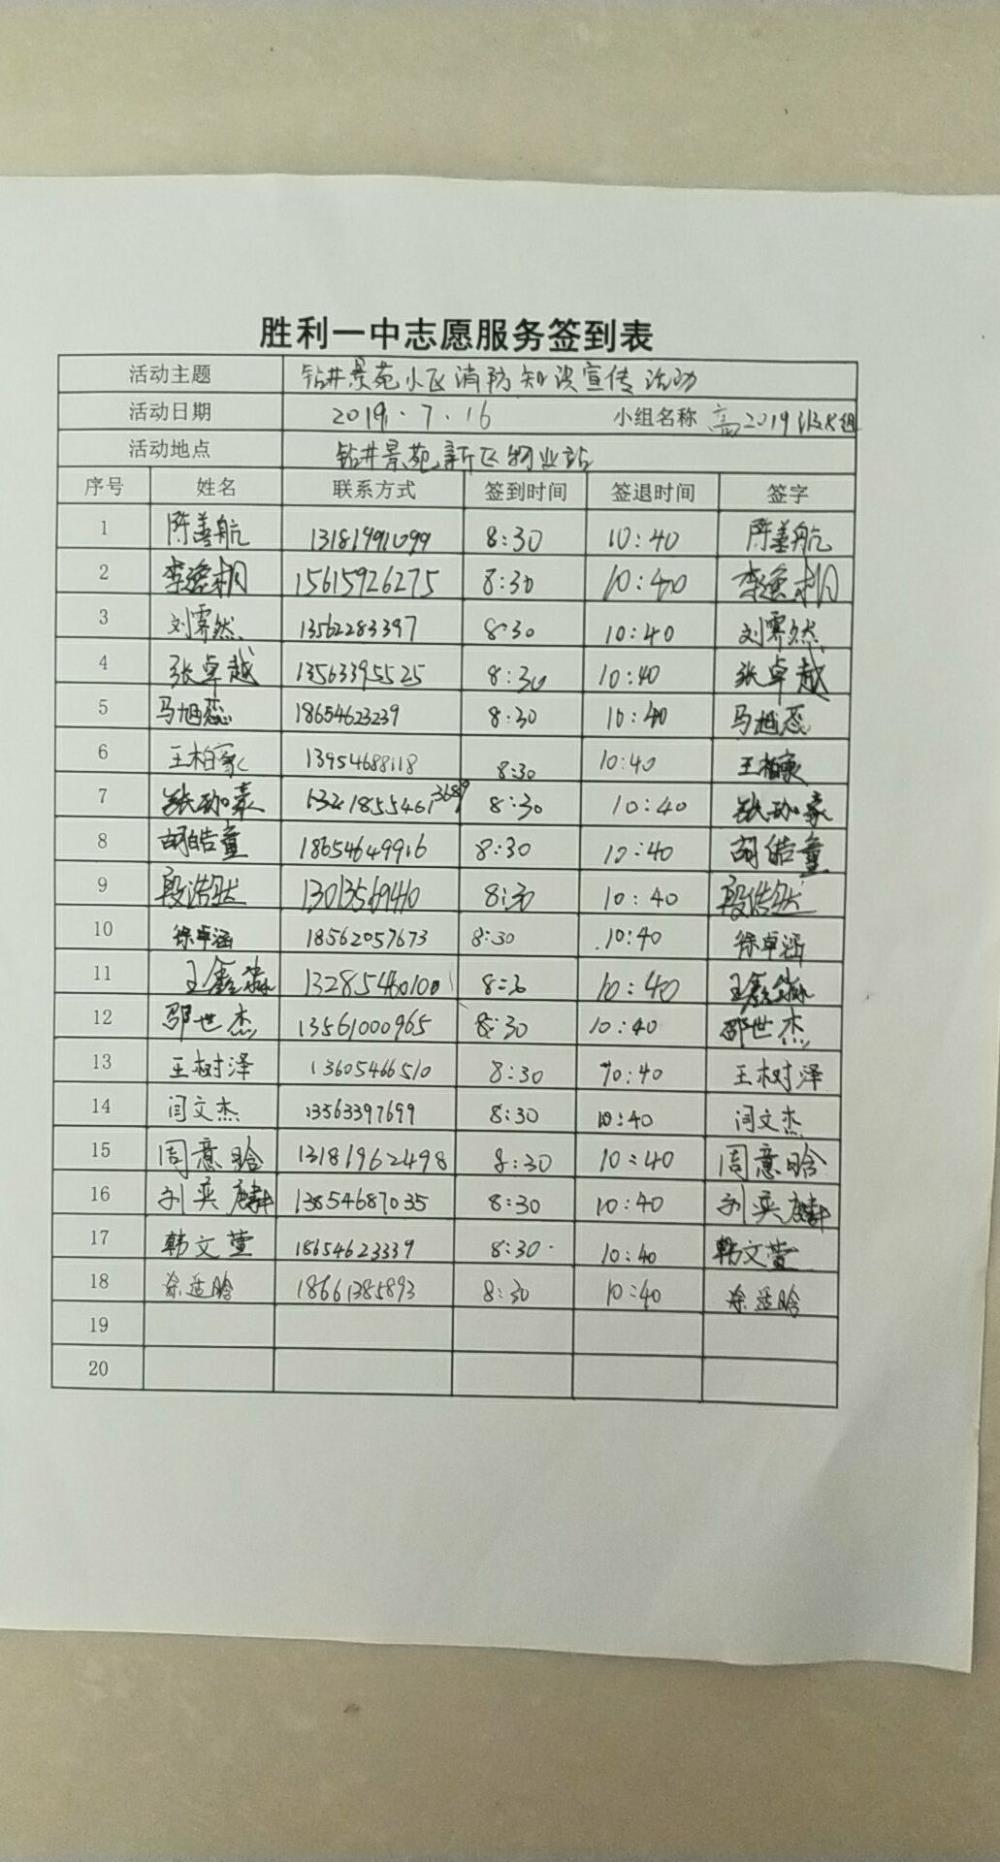 胜利一中志愿服务签到表
活动主题 钻井景苑小区消防知识宣传活动
活动日期 2019.7.16 小组名称 高2019级
活动地点 钻井景苑新区物业站
序号 姓名 联系方式 签到时间 签退时间 签字
1 陈善航 13181991099 8:30 10:40 陈善航
2 李逸桐 15615926275 8:30 10:40 李逸桐
3 刘霁然 13562283397 8:30 10:40 刘霁然
4 张卓越 13563395525 8:30 10:40 张卓越
5 马旭蕊 18654623239 8:30 10:40 马旭蕊
6 王柏家 13954688118 8:30 10:40 王柏家
7 8:30 10:40
8 胡皓童 18654649916 8:30 10:40 胡皓童
9 段浩然 13013569410 8:30 10:40 段浩然
10 徐卓涵 18562057673 8:30 10:40 徐卓涵
11 王鑫淼 13285460100 8:30 10:40 王鑫淼
12 邵世杰 13561000965 8:30 10:40 邵世杰
13 王树泽 13605466510 8:30 10:40 王树泽
14 闫文杰 13563397699 8:30 10:40 闫文杰
15 周意晗 13181962498 8:30 10:40 周意晗
16 刘奕麟 13854687035 8:30 10:40 刘奕麟
17 韩文萱 18654623339 8:30 10:40 韩文萱
18 适晗 18661385893 8:30 10:40 适晗
19
20